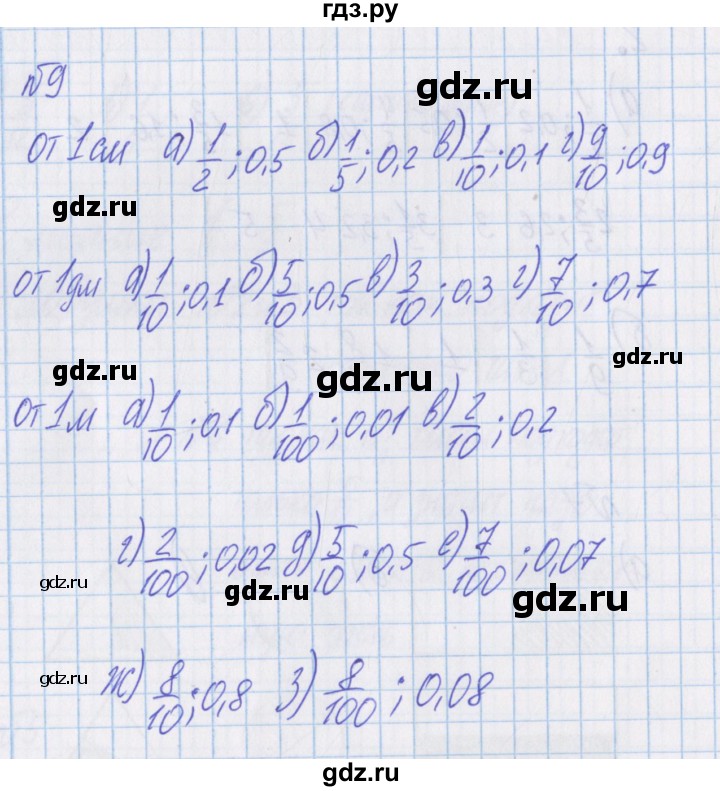 гдз.ру
№9
gdz.ru
от 1см а) 1/2; 0,5 б) 1/5; 0,2 в) 1/10; 0,1 г) 9/10; 0,9
gdz.ru
gdz.ru
от 1дм а) 1/10; 0,1 б) 5/10; 0,5 в) 3/10; 0,3 г) 7/10; 0,7
gdz.ru
gdz.ru
gdz.ru
от 1м а) 1/10; 0,1 б) 1/100; 0,01 в) 2/10; 0,2
г) 2/100; 0,02 д) 5/10; 0,5 е) 7/100; 0,07
gdz.ru
gdz.ru
gdz.ru
ж) 8/10; 0,8 з) 8/100; 0,08
gdz.ru
gdz.ru